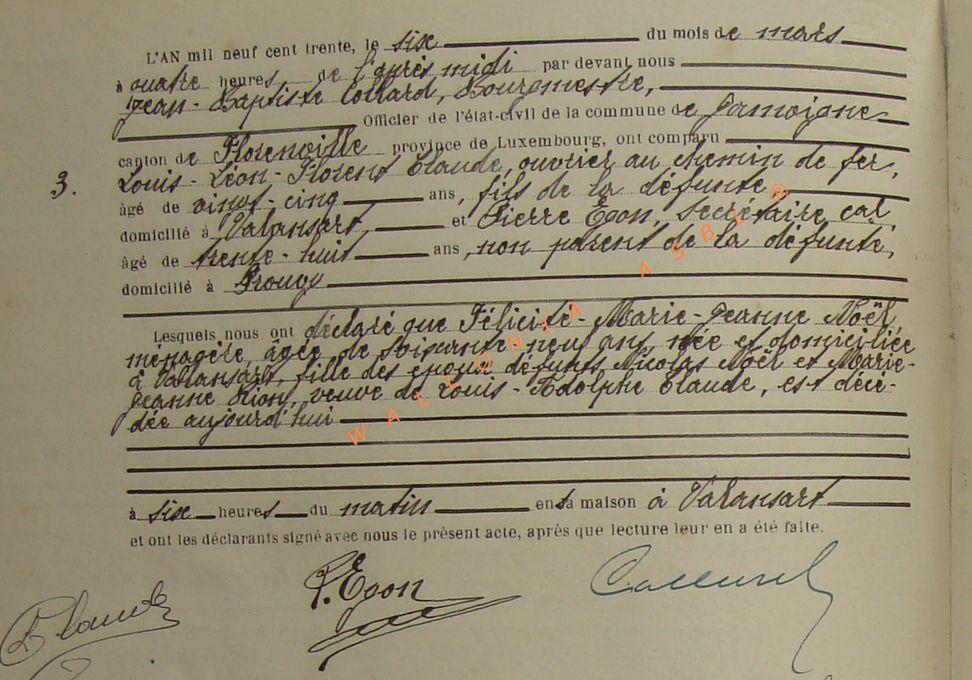 L'AN mil neuf cent trente, le six du mois de mars
à quatre heures, de l'après midi par devant nous
Jean-Baptiste Collard, Bourgmestre,
Officier de l'état-civil de la commune de Jamoigne
canton de Florenville province de Luxembourg, ont comparu
3. Louis-Léon-Florent Claude, ouvrier au chemin de fer,
âgé de vingt-cinq ans, fils de la défunte
domicilié à Valansart, et Pierre Egon, secrétaire cal,
âgé de trente-huit ans, non parent de la défunte,
domicilié à Prouvy
Lesquels nous ont déclaré que Félicité-Marie-Jeanne Noël,
ménagère, âgée de soixante-neuf ans, née et domiciliée
à Valansart, fille des époux défunts Nicolas Noël et Marie-
Jeanne Rion, veuve de Louis-Adolphe Claude, est décé-
dée aujourd'hui
à six heures du matin en sa maison à Valansart
et ont les déclarants signé avec nous le présent acte, après que lecture leur en a été faite.
Claude P. Egon Collard
WALLONIA ASBL ©